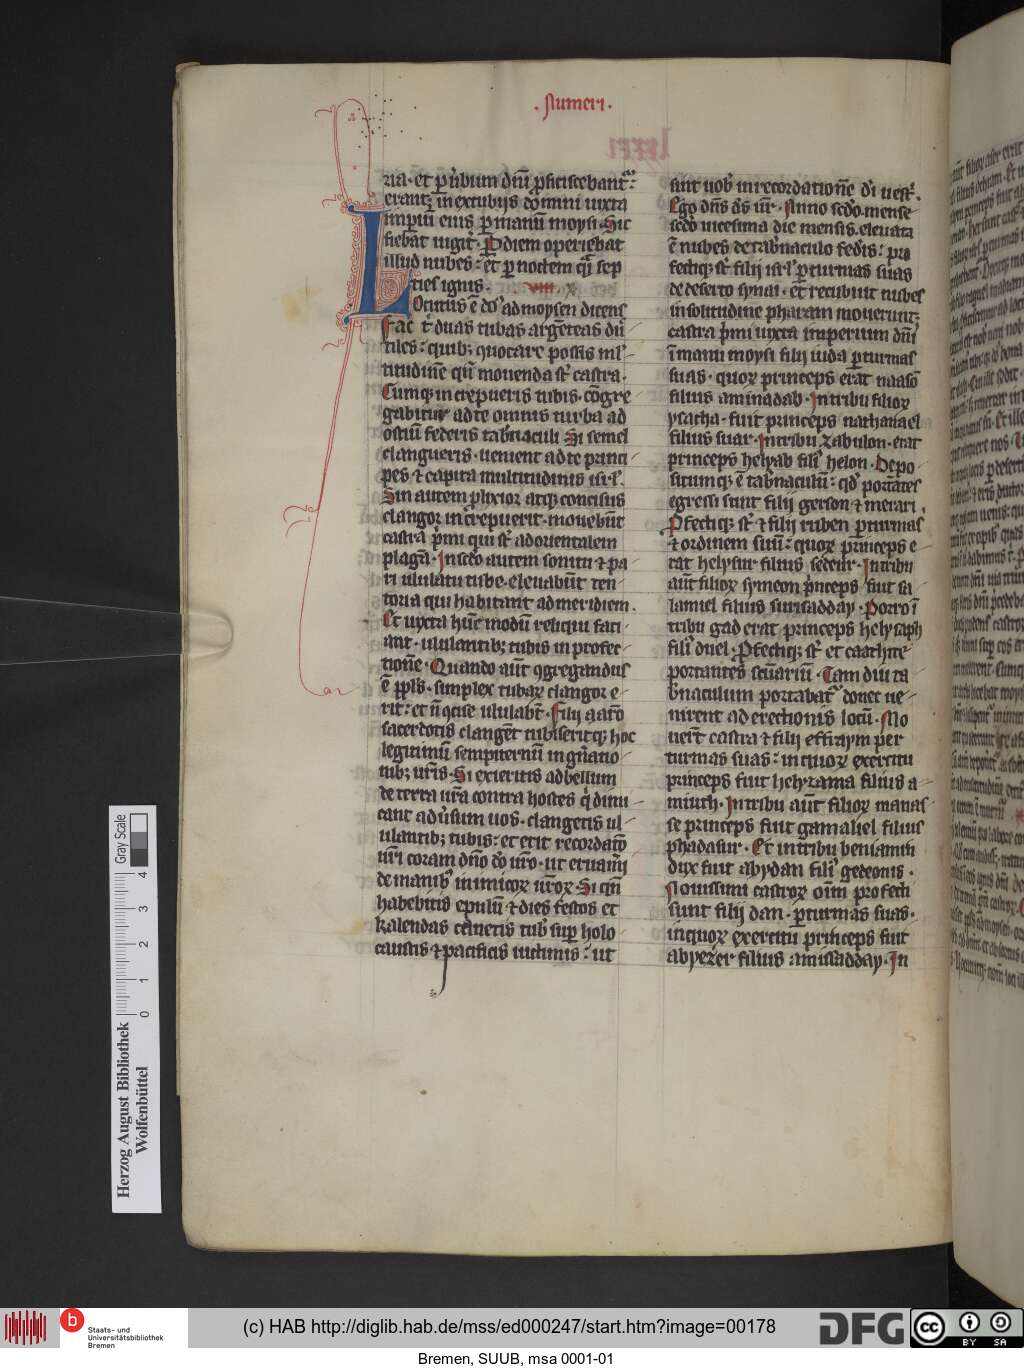 . Numeri .
ria · et p͛ v̾bum dn̄i p̱ficiscebant᷑
erantq; in excubijs dom̄ini iuxta
imp̱iū eius p̱ manum moysi · Sic
fiebat iugit᷑ · P̱ diem operiebat
illud nubes : et p̱ noctem q̄si sp̄e
cies ignis .
LOcutus ē dn̄s ad moysen dicens
Fac t̾ duas tubas argenteas duc
tiles : quib; ꝯuocare possis ml᷑
titudinē qn̄ mouenda st̄ castra ·
Cumq; increpueris tubis · cōgre
gabitur ad te omnis turba ad
ostiū federis tab̾naculi Si semel
clangueris · uenient ad te princi
pes ⁊ capita multitudinis isr̄l .
Sin autem ꝓlixior atq; concisus
clangor increpuerit · mouebūt
castra p̾mi qui st̄ ad orientalem
plagā · In sc̄do autem sonitu ⁊ pa
ri ululatu tube · eleuabūt ten
toria qui habitant ad meridiem .
Et iuxta hūc modū reliqui faci
ant · ululantib; tubis in profec
tionē · Quando aūt ꝯgregandus
ē pp̄ls · simplex tubaꝝ clangor e
rit : et n̄ ꝯcise ululabt̄ · Filij aarō
sacerdotis clangēt tubis eritq; hoc
legitimū sempiternū in gn̄atio
nib; ur̄is · Si exieritis ad bellum
de terra ur̄a contra hostes q̾ dimi
cant adu̾sum uos · clangetis ul
ulantib; tubis : et erit recordatō
ur̄i coram dn̄o do̅ ur̄o · ut eruamī
de manib᷒ inimicoꝝ ur̄oꝝ · Si qn̄
habebitis epulū ⁊ dies festos et
kalendas canetis tub᷒ sup̱ holo
caustis ⁊ pacificis uictimis : ut
sint uob᷒ in recordationē di̅ uest̾ .
Ego dn̄s ds̄ ur̄ · Anno sc̄do · mense
sc̄do uicesima die mensis · eleuata
ē nubes de tab̾naculo fed̾is : pro
fectiq; st̄ filij isr̄l p̱ turmas suas
de deserto synai · et recubuit nubes
in solitudine pharam mouerunt;
castra p̾mi iuxta imperium dn̄i
ī manu moysi filij iuda p̱ turmas
suas · quoꝝ princeps erat naasō
filius aminadab · In tribu filioꝝ
ysacha · fuit princeps nathanael
filius suar · In tribu zabulon · erat
princeps helyab fili᷒ helon · Depo
situmq; ē tab̾naculū : qd̾ portātes
egressi sunt filij gerson ⁊ merari .
P̱fectiq; st̄ ⁊ filij ruben p̱ turmas
⁊ ordinem suū : quoꝝ princeps e
rat helysur filius sedeur · In tribu
aūt filioꝝ symeon p̾nceps fuit sa
lamiel filius surisadday · Porro ī
tribu gad erat princeps helysaph
fili᷒ duel · P̱fectiq; st̄ et caathite
portantes sc̄uariū · Tam diu ta
b̾naculum portabat᷑ donec ue
nirent ad erectionis locū · Mo
ueīt castra ⁊ filij effraym per
turmas suas : in quoꝝ exercitu
princeps fuit helyzama filius a
miuth · In tribu aūt filioꝝ manas
se princeps fuit gamaliel filius
phadasur · Et in tribu beniamin
dux fuit abydan fili᷒ gedeonis .
Nouissimi castroꝝ om̄i profecti
sunt filij dan · p̱ turmas suas ·
in quoꝝ exercitu princeps fuit
abyezer filius amisadday · In
Gray Scale
0 1 2 3 4
Herzog August Bibliothek
Wolfenbüttel
b
Staats- und
Universitätsbibliothek
Bremen
(c) HAB http://diglib.hab.de/mss/ed000247/start.htm?image=00178
DFG
cc
BY SA
Bremen, SUUB, msa 0001-01